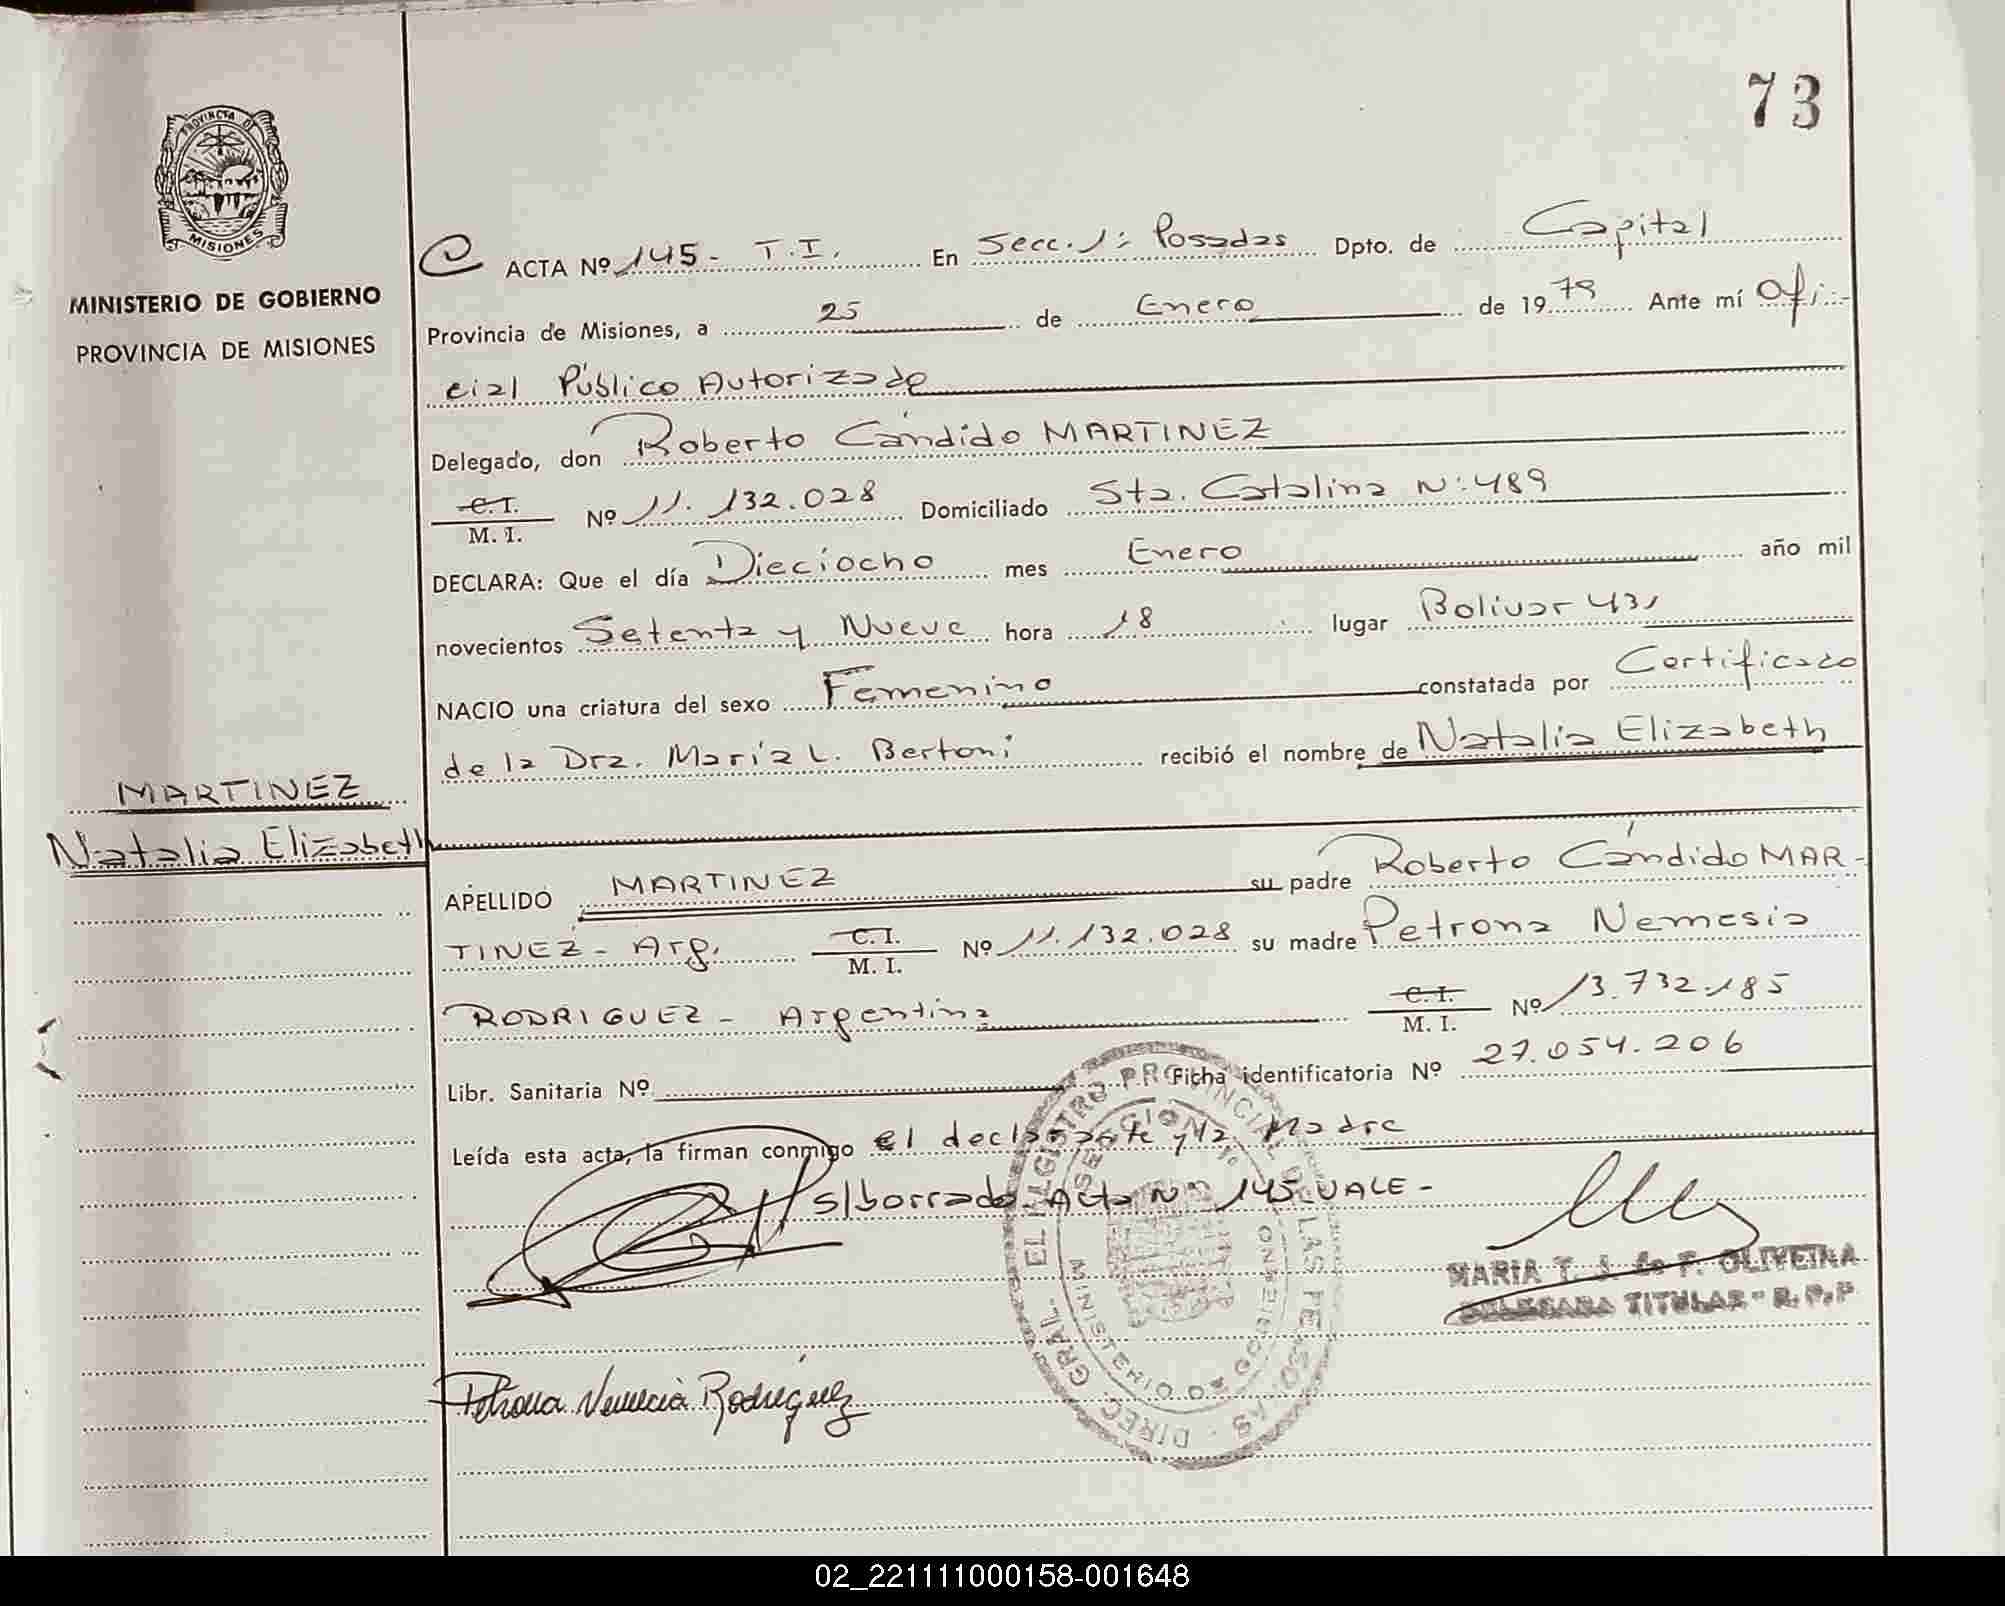 73
PROVINCIA DE
MISIONES
MINISTERIO DE GOBIERNO
PROVINCIA DE MISIONES
MARTINEZ
Natalia Elizabeth
ACTA Nº 145- T.I. En Secc. 1: Posadas Dpto. de Capital
Provincia de Misiones, a 25 de Enero de 1979 Ante mí Ofi-
cial Público Autorizado
Delegado, don Roberto Cándido MARTINEZ
C.I.
M. I. Nº 11.132.028 Domiciliado Sta. Catalina N: 489
DECLARA: Que el día Dieciocho mes Enero año mil
novecientos Setenta y Nueve hora 18 lugar Bolivar 431
NACIO una criatura del sexo Femenino constatada por Certificado
de la Dra. María L. Bertoni recibió el nombre de Natalia Elizabeth
APELLIDO MARTINEZ su padre Roberto Cándido MAR-
TINEZ- Arg. C.I.
M. I. Nº 11.132.028 su madre Petrona Nemesia
RODRIGUEZ- Argentina C.I.
M. I. Nº 13.732.185
Libr. Sanitaria Nº Ficha identificatoria Nº 27.054.206
Leída esta acta, la firman conmigo el declarante y la Madre
s/borrado Acta Nº 145-VALE-
MARIA T. J. de F. OLIVEIRA
DELEGADA TITULAR - R.P.P
Petrona Nemecia Rodríguez
DIREC. GRAL. EL REGISTRO PROVINCIAL DE LAS PERSONAS
SECCION 1º
MINISTERIO DE GOBIERNO
02_221111000158-001648